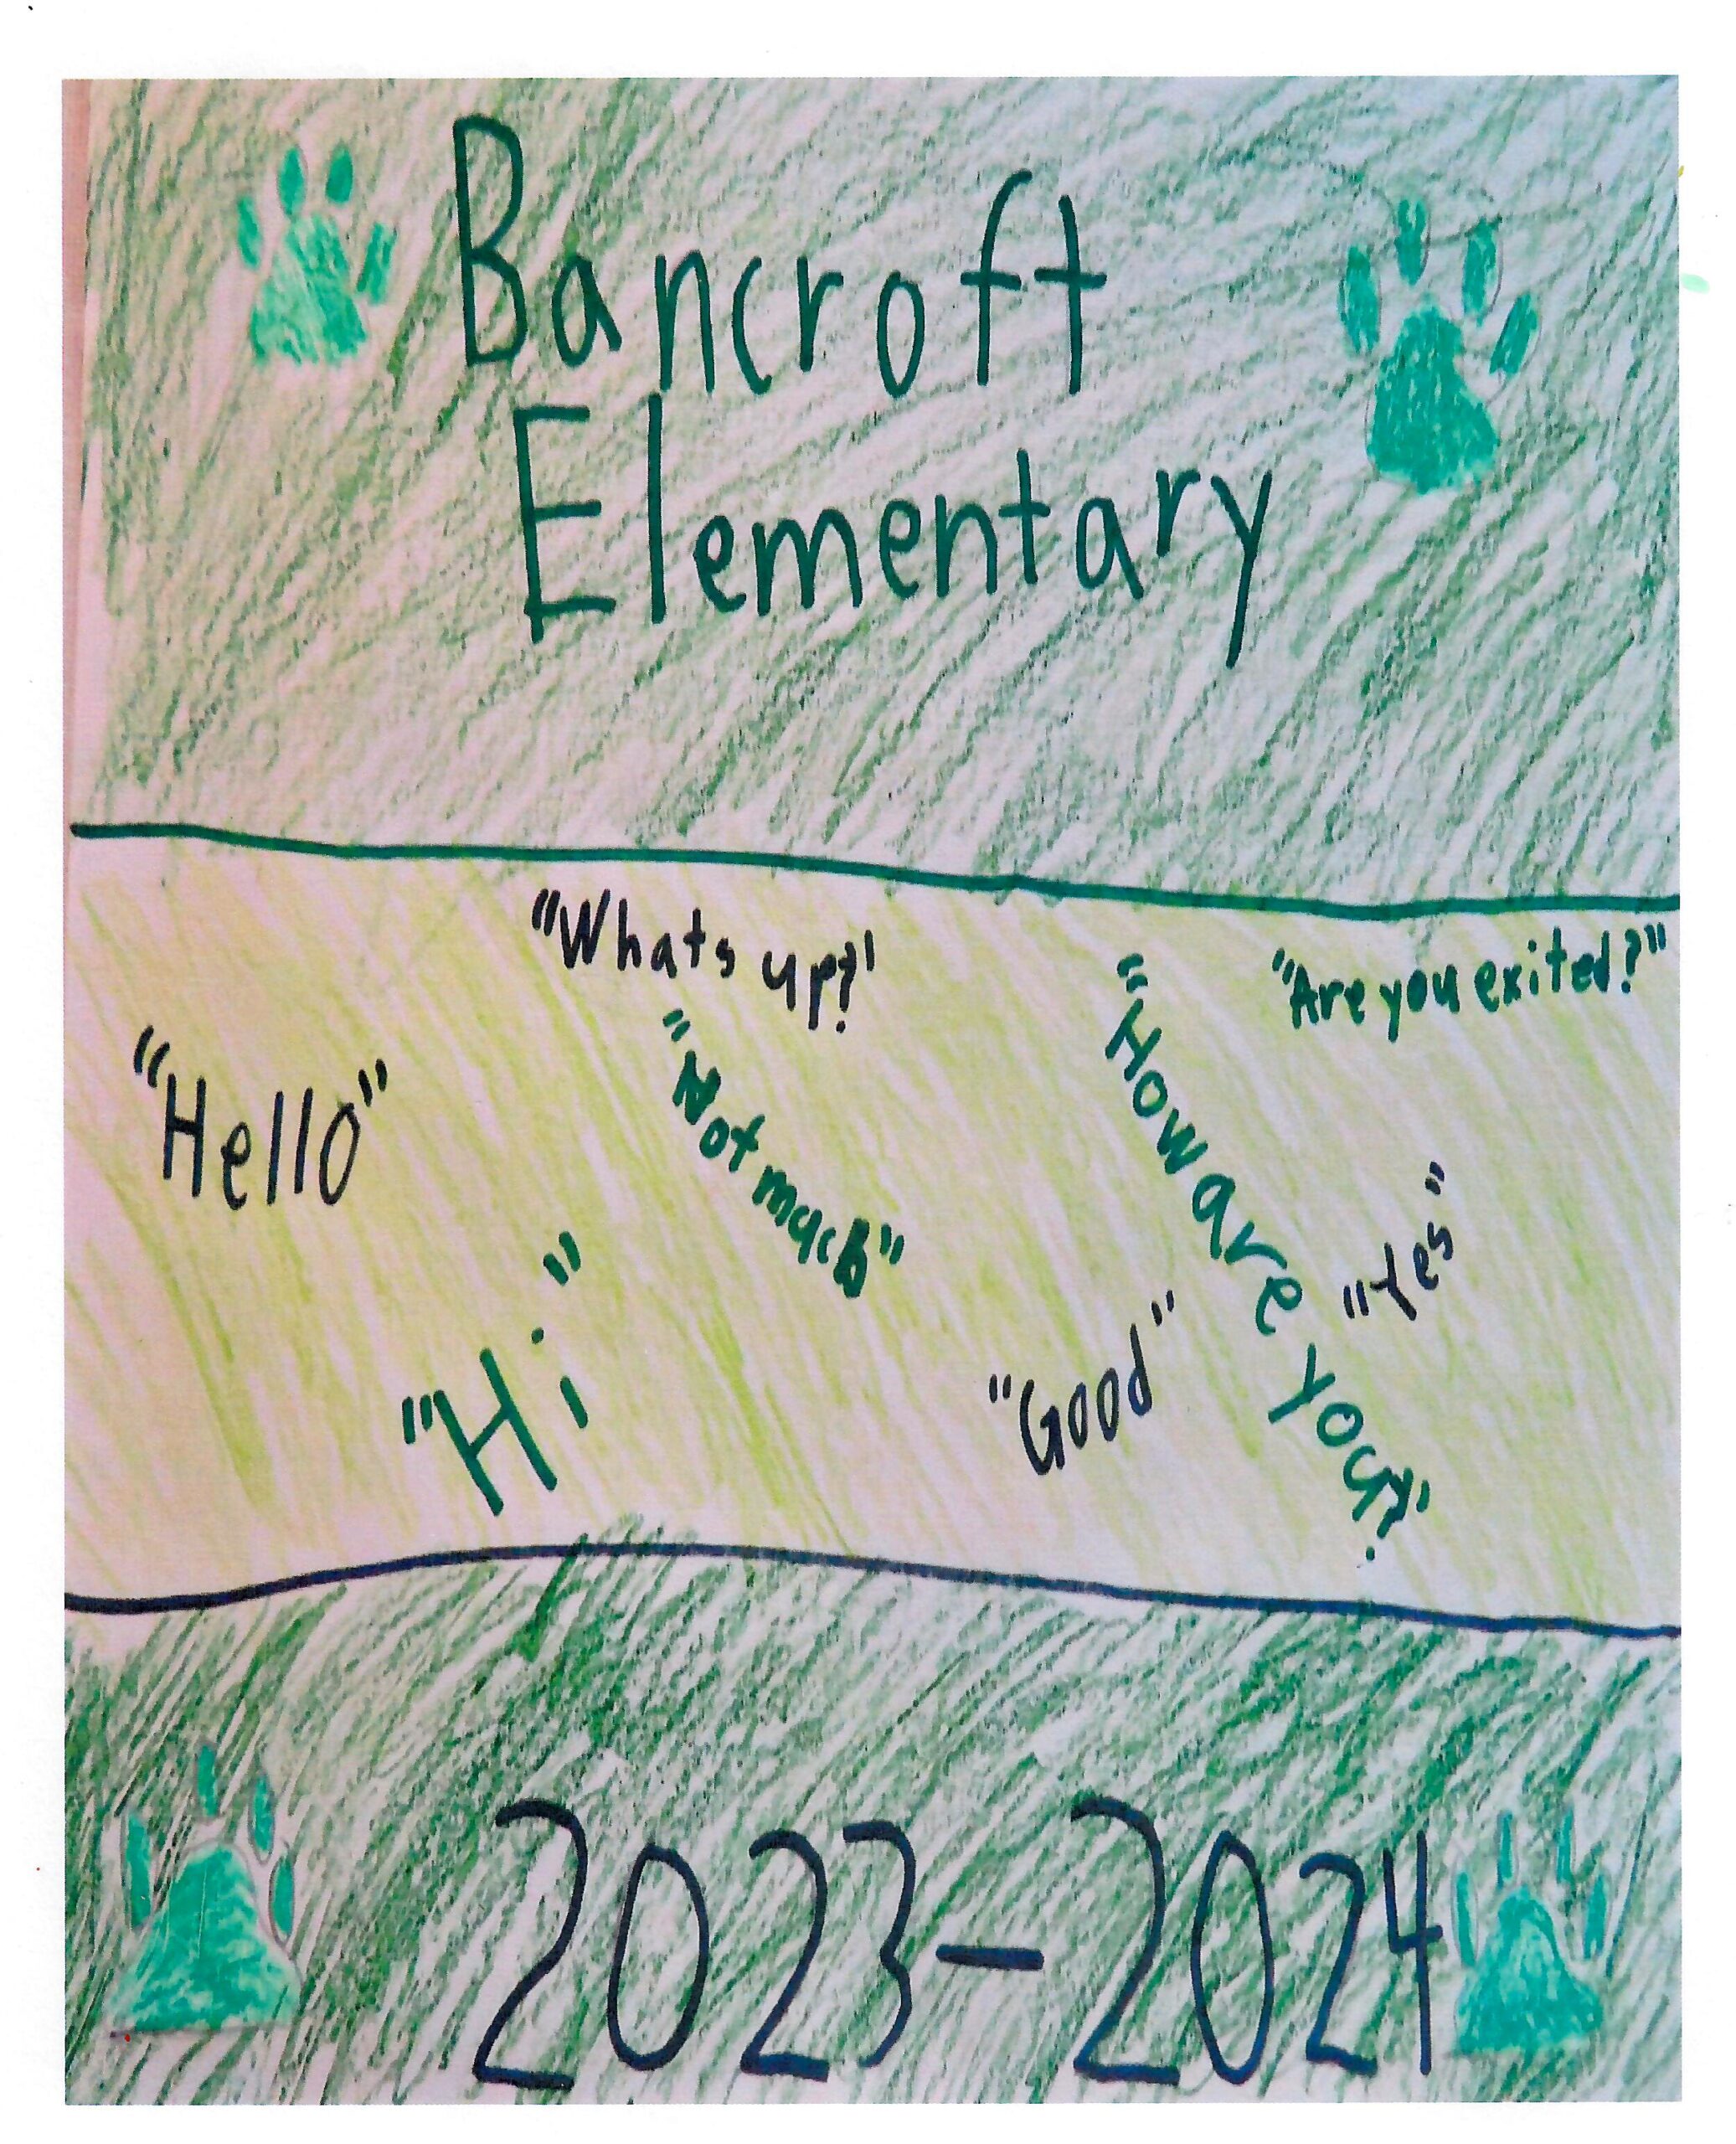 Bancroft
Elementary
"Whats up?"
"Are you exited?"
"Hello"
"Not much"
"How are you?"
"Hi"
"Good"
"Yes"
2023-2024